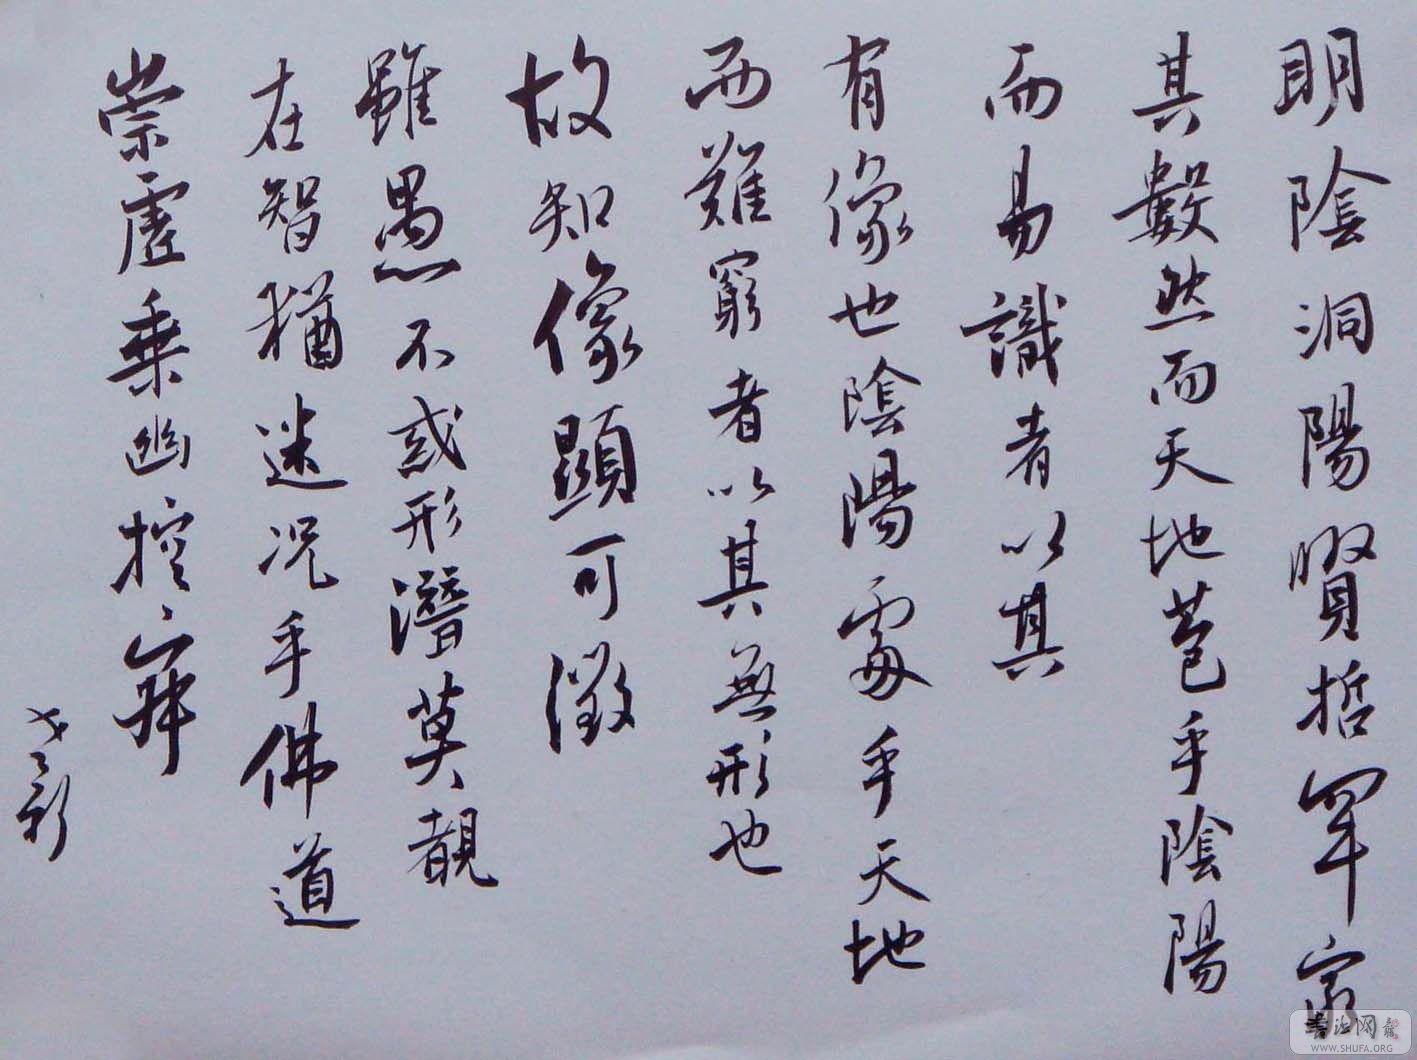 明陰洞陽賢哲罕窮
其數然而天地苞乎陰陽
而易識者以其
有像也陰陽處乎天地
而難窮者以其無形也
故知像顯可徵
雖愚不惑形潛莫覩
在智猶迷况乎佛道
崇虛乗幽控寂
書法网
WWW.SHUFA.ORG